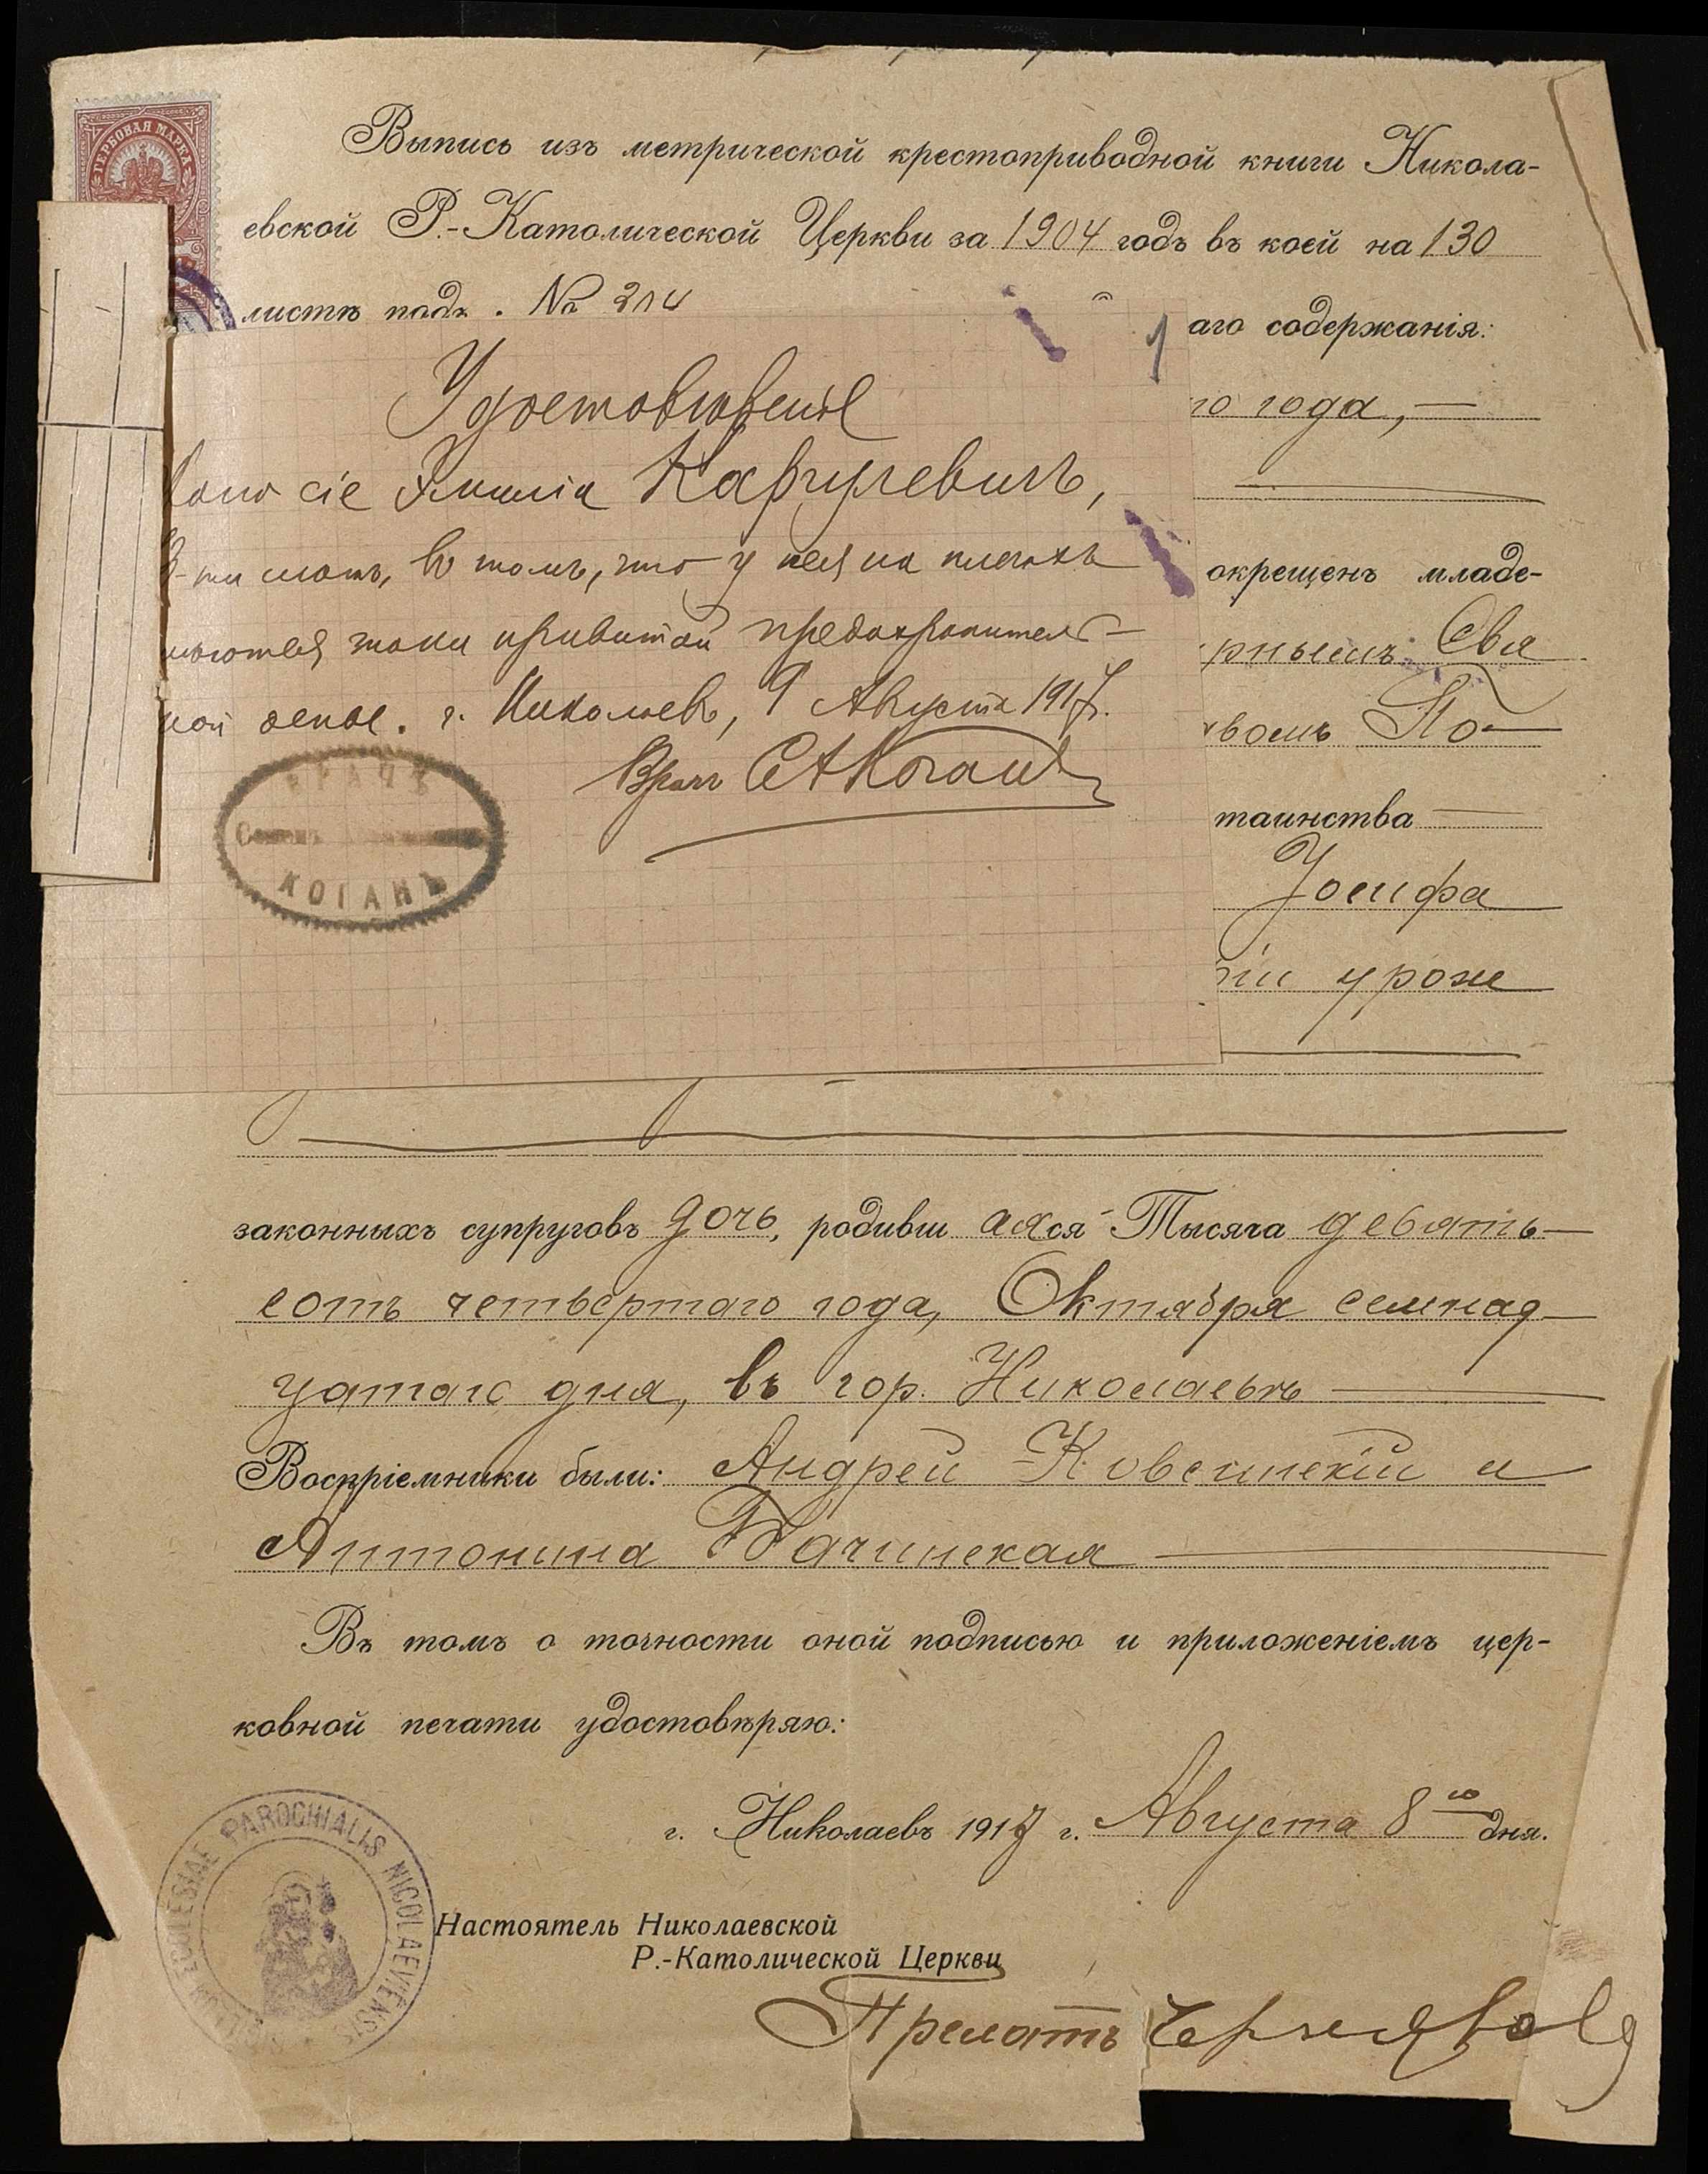 ГЕРБОВАЯ МАРКА
Выпись изъ метрической крестоприводной книги Никола-
евской Р.-Католической Церкви за 1904 годъ въ коей на 130
листѣ подъ № 214
аго содержанія:
го года,
окрещенъ младе-
рнымъ Ева
твомъ По-
таинства
Іосифа
уроже
Удостовѣреніе
сіе Эмилія
лѣтъ, въ томъ, что у нея на плечахъ
имѣются знаки привитой предохранитель-
ной оспы. г. Николаевъ, 9 Августа 1917.
Врачъ САКоганъ
ВРАЧЪ
КОГАНЪ
законныхъ супруговъ дочь, родивш аяся Тысяча девять-
сотъ четвертаго года, Октября семнад
цатаго дня, въ гор. Николаевѣ
Воспріемники были: Андрей Ковенскій и
Антонина Бачинская
Въ томъ о точности оной подписью и приложеніемъ цер-
ковной печати удостовѣряю:
г. Николаевъ 1917 г. Августа 8 го дня.
ECCLESIAE PAROCHIALIS NICOLAEVIENSIS
Настоятель Николаевской
Р.-Католической Церкви
Прелатъ